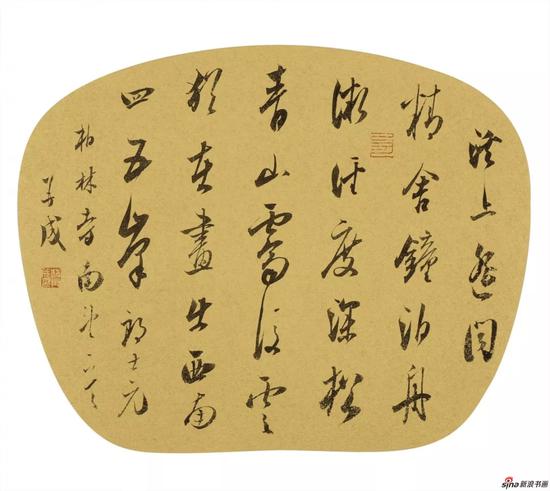 溪上遥聞
精舍鐘泊舟
微徑度深松
青山霽後雲
猶在畫出西南
四五峯 郎士元
柏林寺南望
成
sina新浪书画